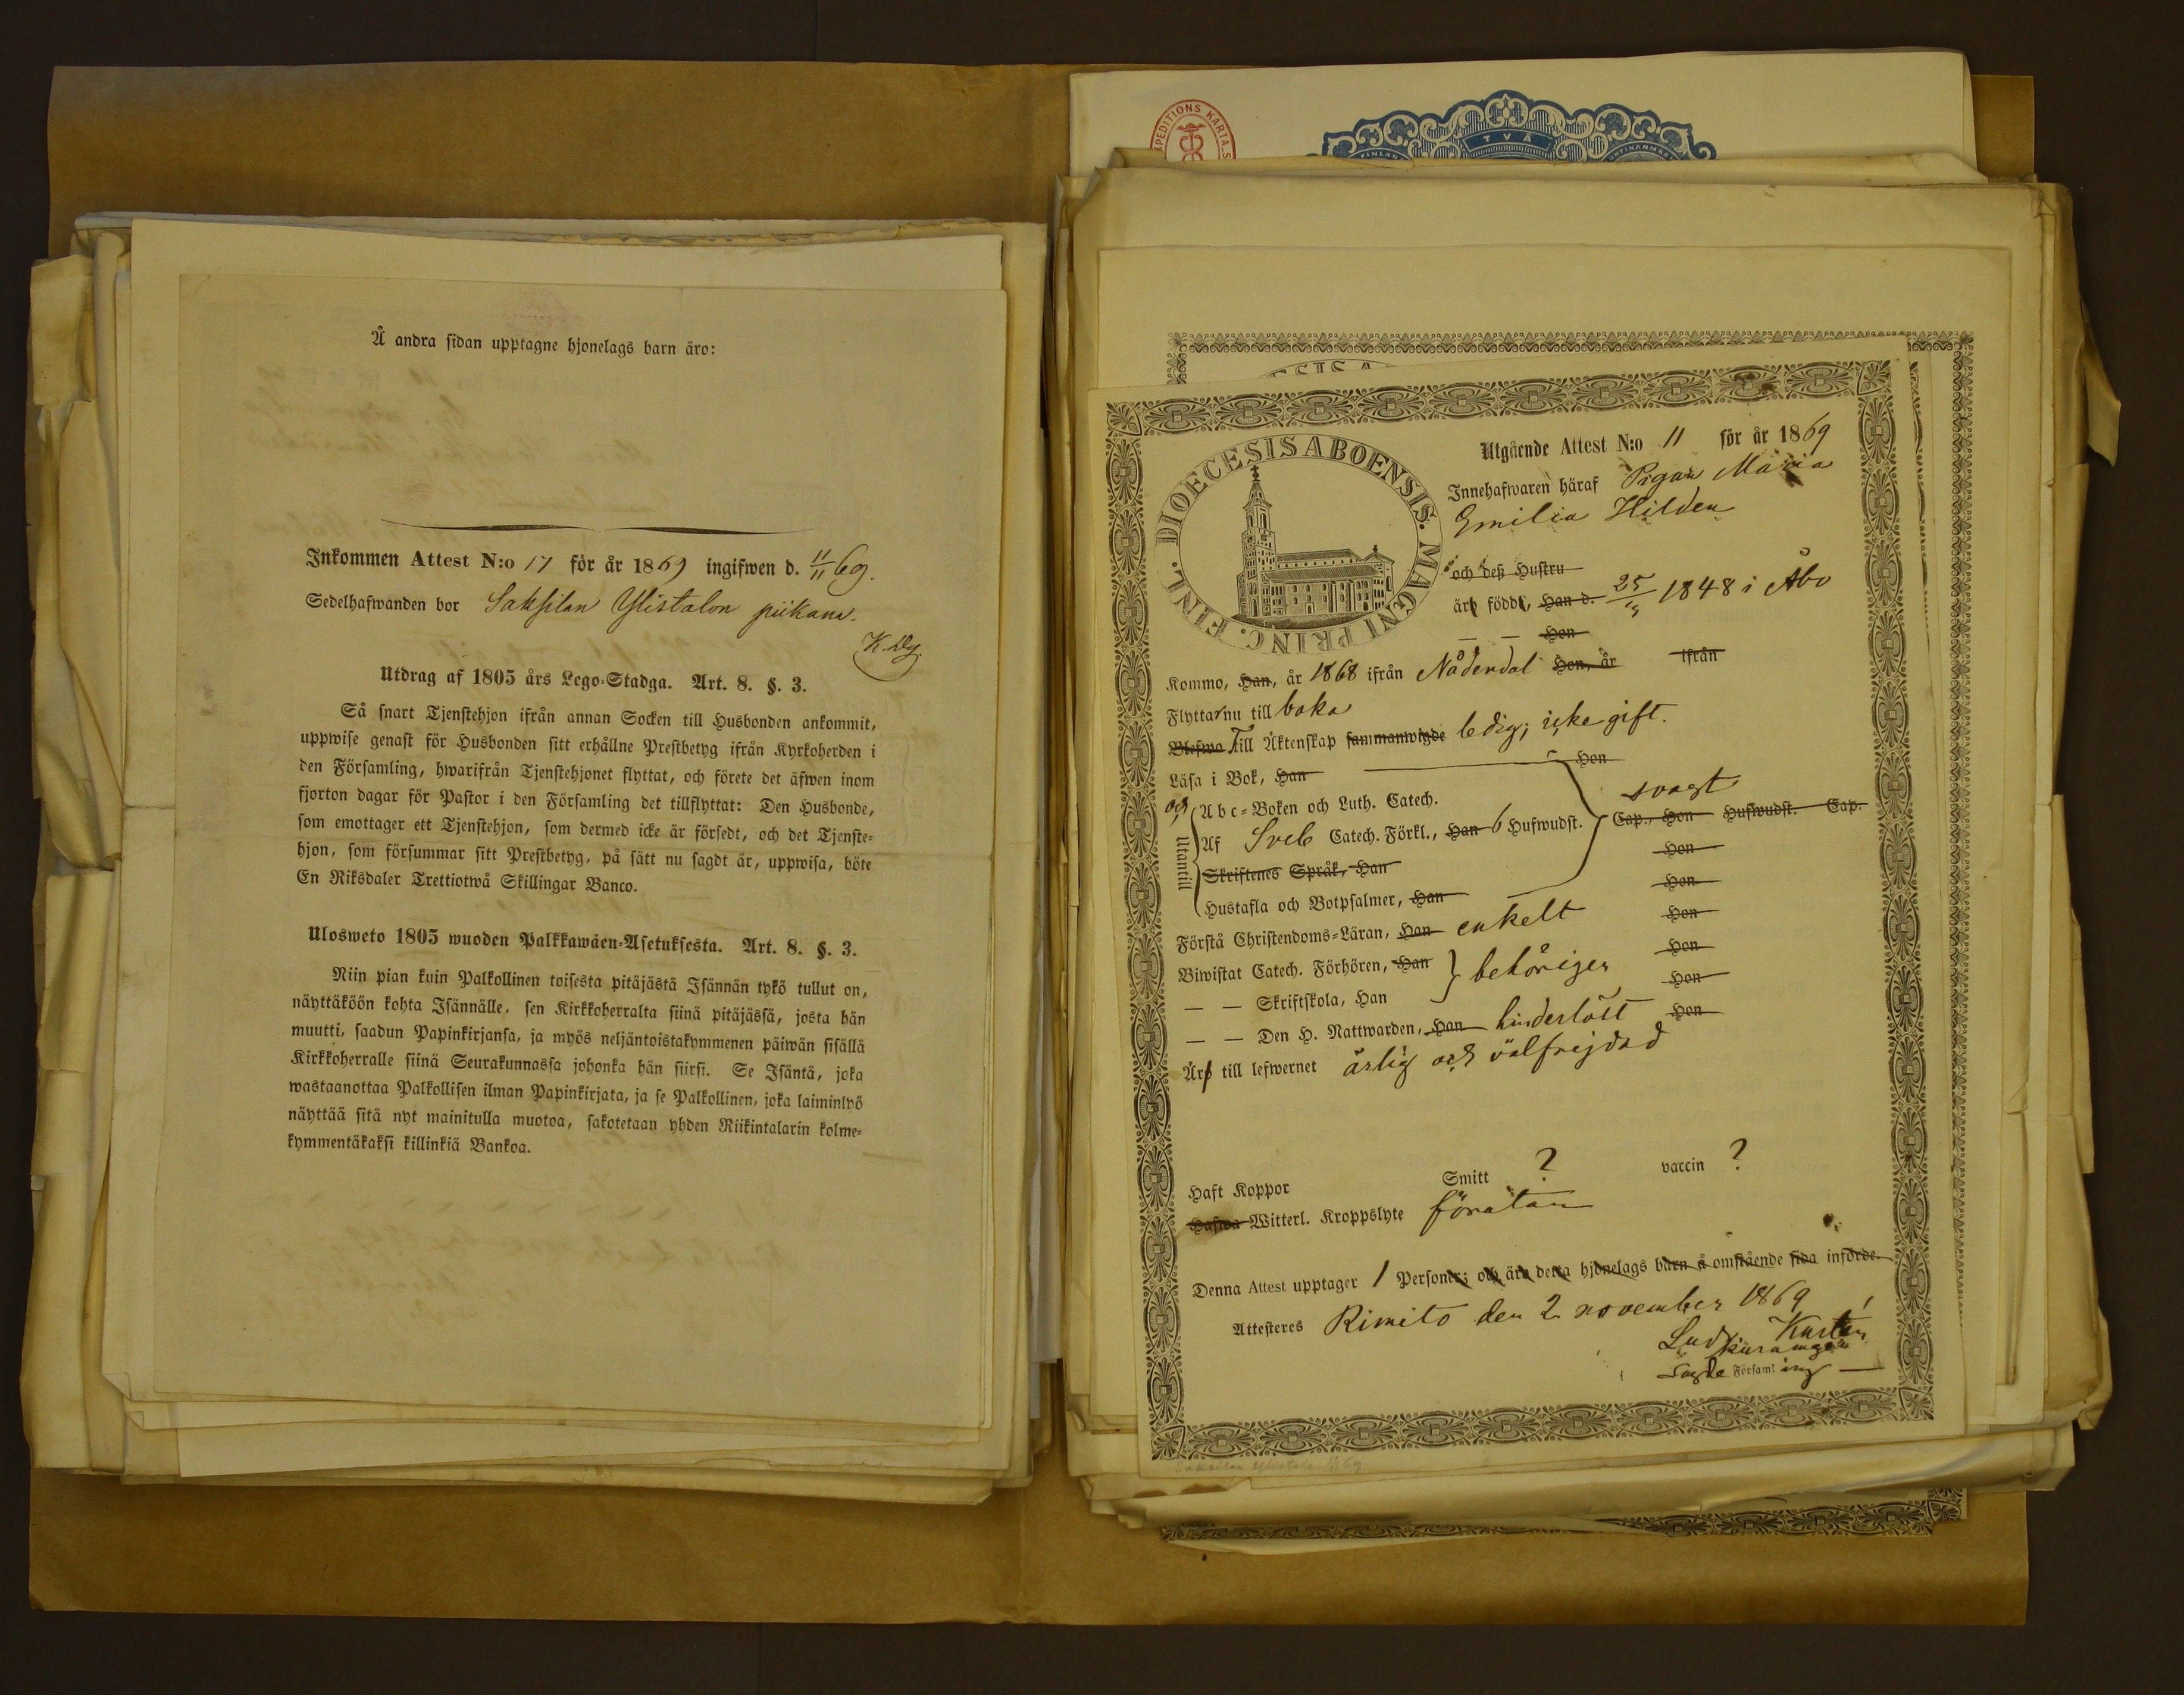 Å andra sidan upptagne hjonelags barn äro:
Inkommen Attest N:o 17 för år 1869 ingifwen d. 11/11 69.
Sedelhafwanden bor Saksilan Ylistalon piikana.
Utdrag af 1805 års Lego-Stadga. Art. 8. §. 3.
Så snart Tjenstehjon ifrån annan Socken till Husbonden ankommit,
uppwise genast för Husbonden sitt erhållne Prestbetyg ifrån Kyrkoherden i
den Församling, hwarifrån Tjenstehjonet flyttat, och förete det äfwen inom
fjorton dagar för Pastor i den Församling det tillflyttat: Den Husbonde,
som emottager ett Tjenstehjon, som dermed icke är försedt, och det Tjenste-
hjon, som försummar sitt Prestbetyg, på sätt nu sagdt är, uppwisa, böte
En Riksdaler Trettiotwå Skillingar Banco.
Ulosweto 1805 wuoden Palkkawäen-Asetuksesta. Art. 8. §. 3.
Niin pian kuin Palkollinen toisesta pitäjästä Isännän tykö tullut on,
näyttäköön kohta Isännälle, sen Kirkkoherralta siinä pitäjässä, josta hän
muutti, saadun Papinkirjansa, ja myös neljäntoistakymmenen päiwän sisällä
Kirkkoherralle siinä Seurakunnassa johonka hän siirsi. Se Isäntä, joka
wastaanottaa Palkollisen ilman Papinkirjata, ja se Palkollinen, joka laiminlyö
näyttää sitä nyt mainitulla muotoa, sakotetaan yhden Riikintalarin kolme-
kymmentäkaksi killinkiä Bankoa.
TVÅ
DIOECESIS ABOENSIS. MAGNI PRINC. FINL.
Utgående Attest N:o 11 för år 1869
Innehafwaren häraf Pigan Maria
Emilia Hilden
och deß Hustru
är född, Han d. 25/ 1848 i Åbo
— — Hon
Kommo, Han, år 1868 ifrån Nådendal Hon, år ifrån
Flyttar nu till baka
Blefwo Till Äktenskap sammanwigde ledig; icke gift.
Läsa i Bok, Han Hon
och Abc-Boken och Luth. Catech. svagt
Utantill
Af Sveb Catech. Förkl., Han 6 Hufwudst. Cap., Hon Hufwudst. Cap.
Skriftenes Språk, Han Hon
Hustafla och Botpsalmer, Han Hon
Förstå Christendoms-Läran, Han enkelt Hon
Biwistat Catech. Förhören, Han behörigen Hon
— — Skriftskola, Han Hon
— — Den H. Nattwarden, Han hinderlöst Hon
Är till lefwernet ärlig och välfrejdad
Haft Koppor Smitt ? vaccin ?
Hafwa Witterl. Kroppslyte förutan
Denna Attest upptager 1 Personer; och äro detta hjonelags barn å omstående sida införde.
Attesteres Rimito den 2 november 1869
Sagde Församling